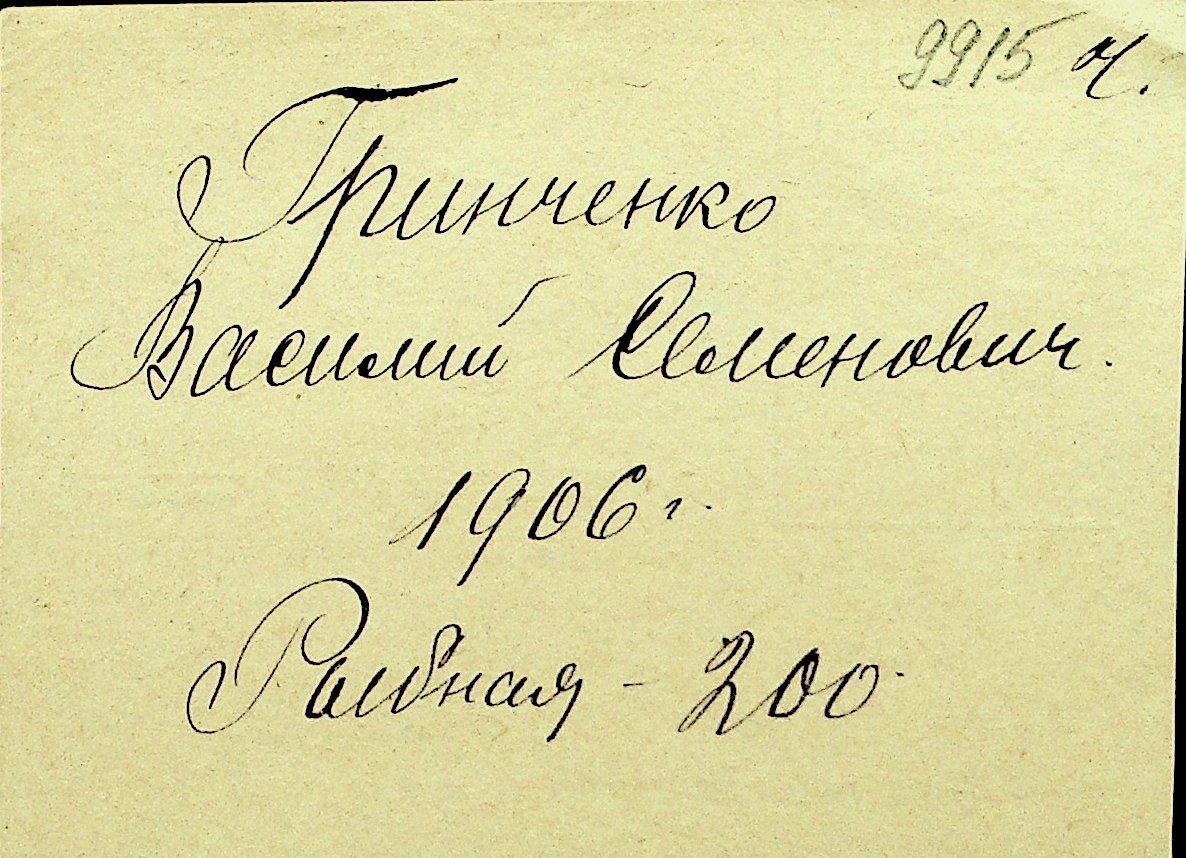 9915 ч.
Гринченко
Василий Семенович.
1906 г.
Рыбная - 200.